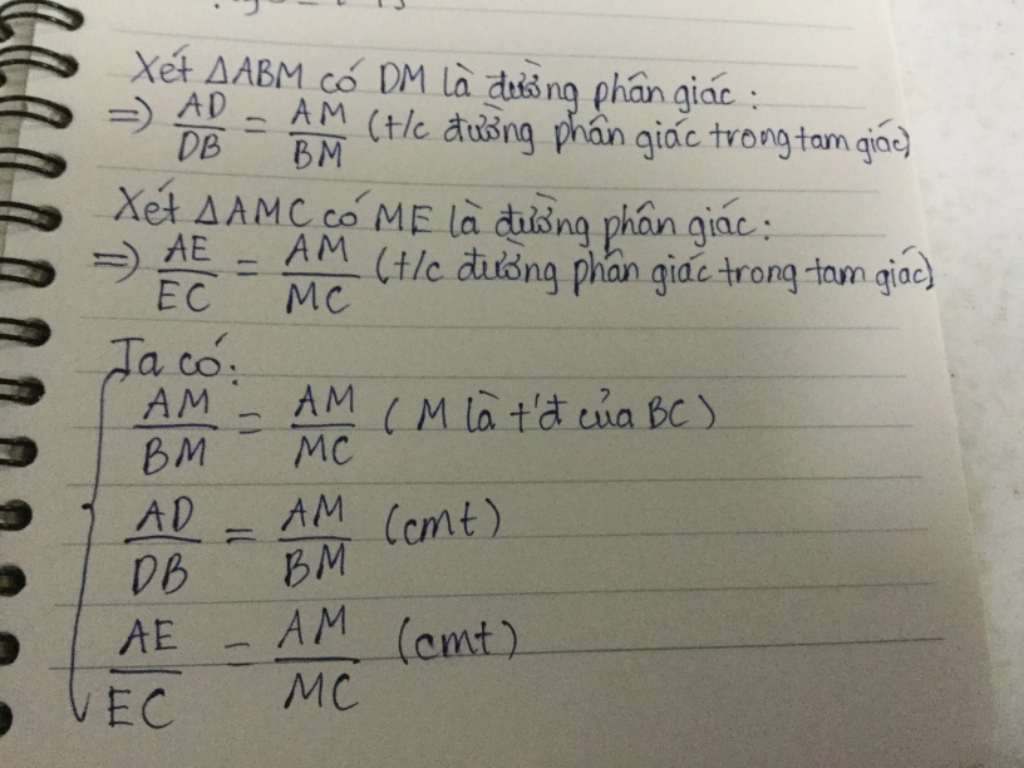 Xét ΔABM có DM là đường phân giác:
=> AD/DB = AM/BM (t/c đường phân giác trong tam giác)
Xét ΔAMC có ME là đường phân giác:
=> AE/EC = AM/MC (t/c đường phân giác trong tam giác)
Ta có:
AM/BM = AM/MC (M là t'đ của BC)
AD/DB = AM/BM (cmt)
AE/EC = AM/MC (cmt)